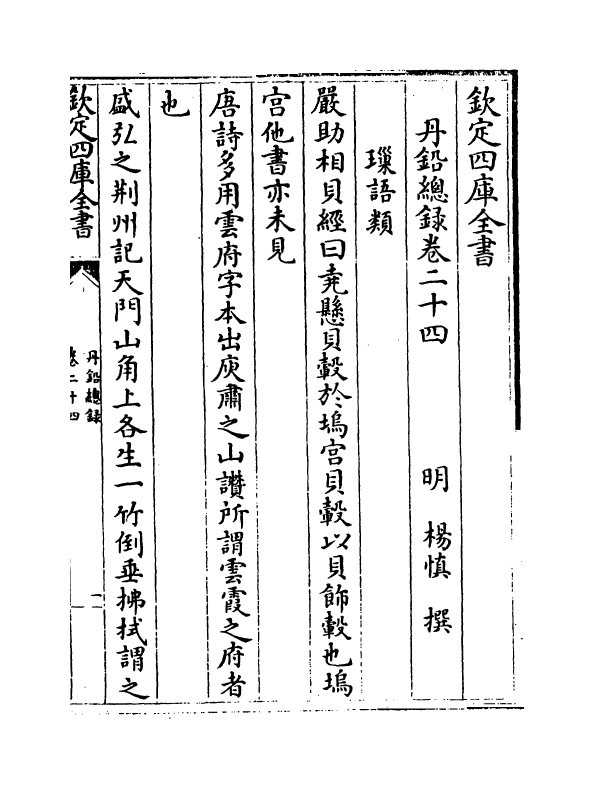 欽定四庫全書
丹鉛總録卷二十四
明 楊慎 撰
璅語類
嚴助相貝經曰堯懸貝轂於塢宫貝轂以貝飾轂也塢
宫他書亦未見
唐詩多用雲府字本出庾肅之山讚所謂雲霞之府者
也
盛弘之荆州記天門山角上各生一竹倒垂拂拭謂之
欽定四庫全書
丹鉛總錄
卷二十四
一